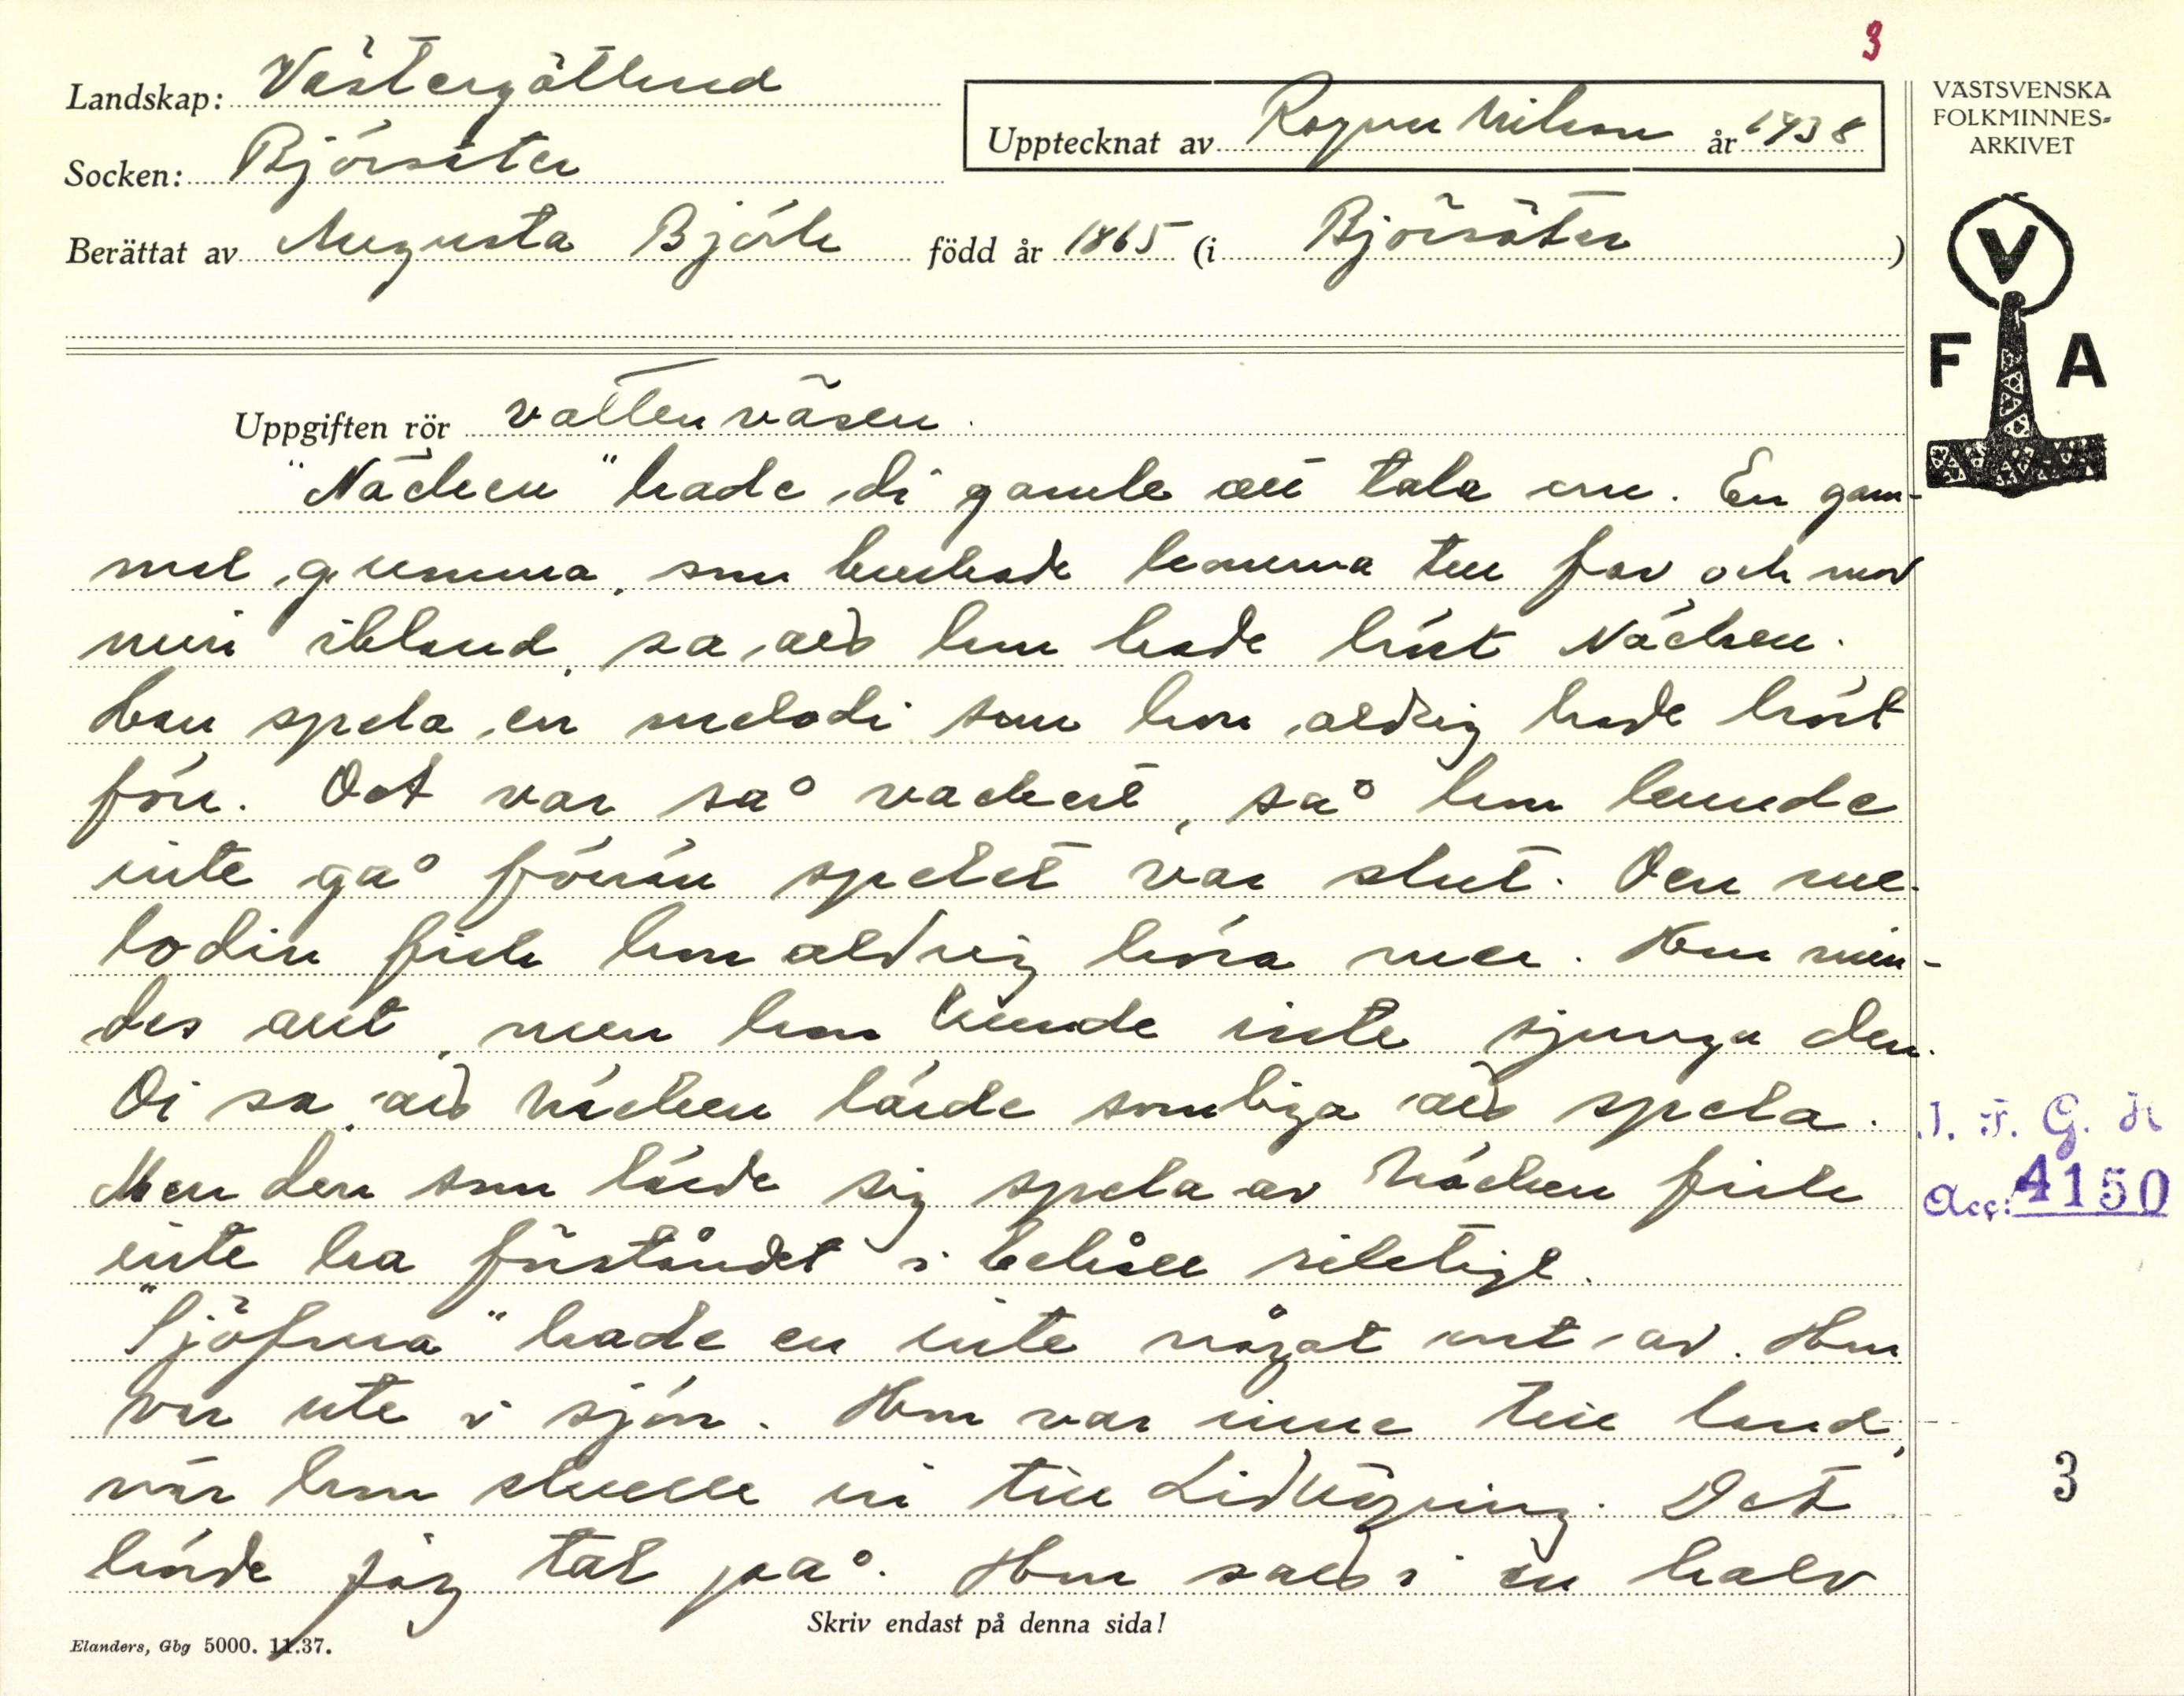 3
Landskap: Västergötland
Upptecknat av Ragnar Nilsson år 1938
VÄSTSVENSKA
FOLKMINNES-
ARKIVET
Socken: Björsäter
Berättat av Augusta Björk född år 1865 (i Björsäter)
V
F A
Uppgiften rör vattenväsen.
"Näcken" hade di gamle att tala om. En gam-
mal gumma, som brukade komma till far och mor
min ibland, sa att hon hade hört Näcken.
Han spela en melodi som hon aldrig hade hört
förr. Det var så vackert, så hon kunde
inte gå förrän spelet var slut. Den me-
lodin fick hon aldrig höra mer. Hon min-
des allt, men hon kunde inte sjunga den.
Di sa, att Näcken lärde somliga att spela.
Men den som lärde sig spela av Näcken fick
inte ha förståndet i behåll riktigt.
"Sjöfrua" hade en inte något ont av. Hon
var ute i sjön. Hon var inne till land,
när hon skulle in till Lidköping. Det
hörde jag tal på. Hon satt i en halv
I. F. G. H
Acc: 4150
3
Skriv endast på denna sida!
Elanders, Gbg 5000. 11.37.